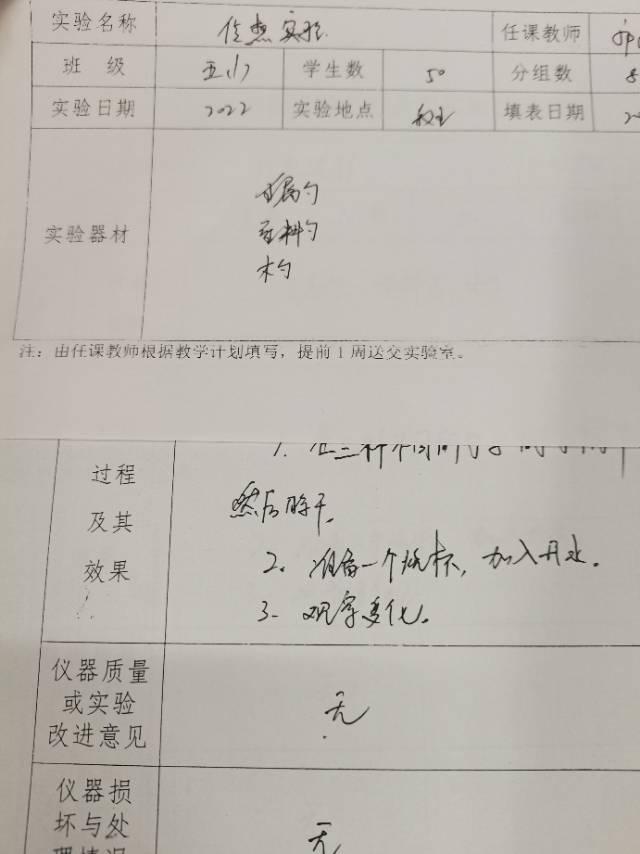 实验名称 传热实验 任课教师
班 级 五(1) 学生数 50 分组数 8
实验日期 2022 实验地点 教室 填表日期
金属勺
实验器材 塑料勺
木勺
注：由任课教师根据教学计划填写，提前1周送交实验室。
1. 在三种不同
过程
然后晾干。
及其
效果 2. 准备一个烧杯，加入开水。
3. 观察变化。
仪器质量
或实验 无
改进意见
仪器损
坏与处 无
理情况